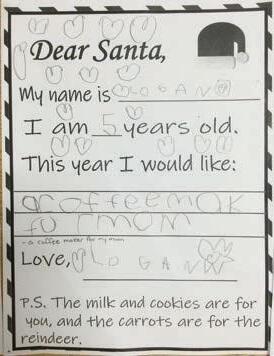 Dear Santa,
My name is LOGAN
I am 5 years old.
This year I would like:
a coffee mak
fo rmom
- a coffee maker for my mom
Love, LOGAN
P.S. The milk and cookies are for
you, and the carrots are for the
reindeer.